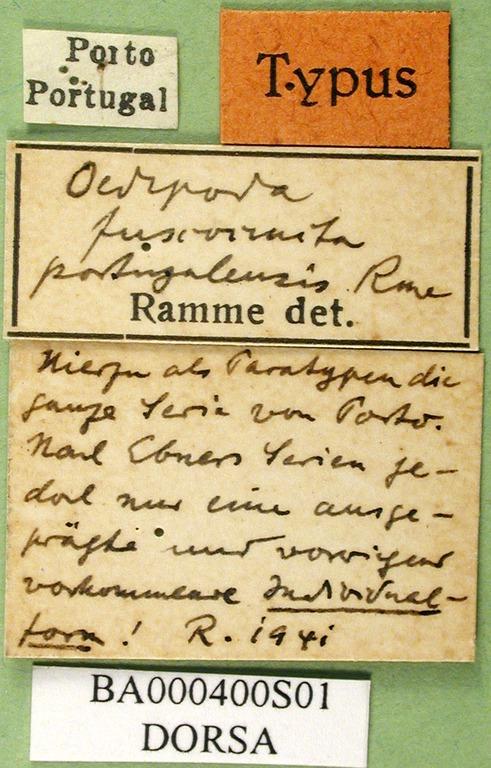 Porto
Portugal
Typus
Oedipoda
fuscocincta
portugalensis Rme
Ramme det.
Hierzu als Paratypen die
ganze Serie von Porto.
Nach Ebners Serien je-
doch nur eine ausge-
prägte und vorwiegend
vorkommende Individual-
form! R. 1941
BA000400S01
DORSA